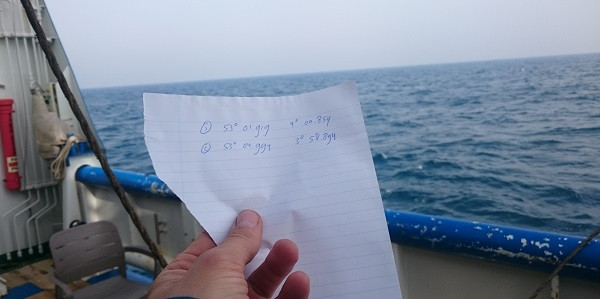 ① 53° 01.919 4° 00.859
② 53° 04.994 3° 58.894